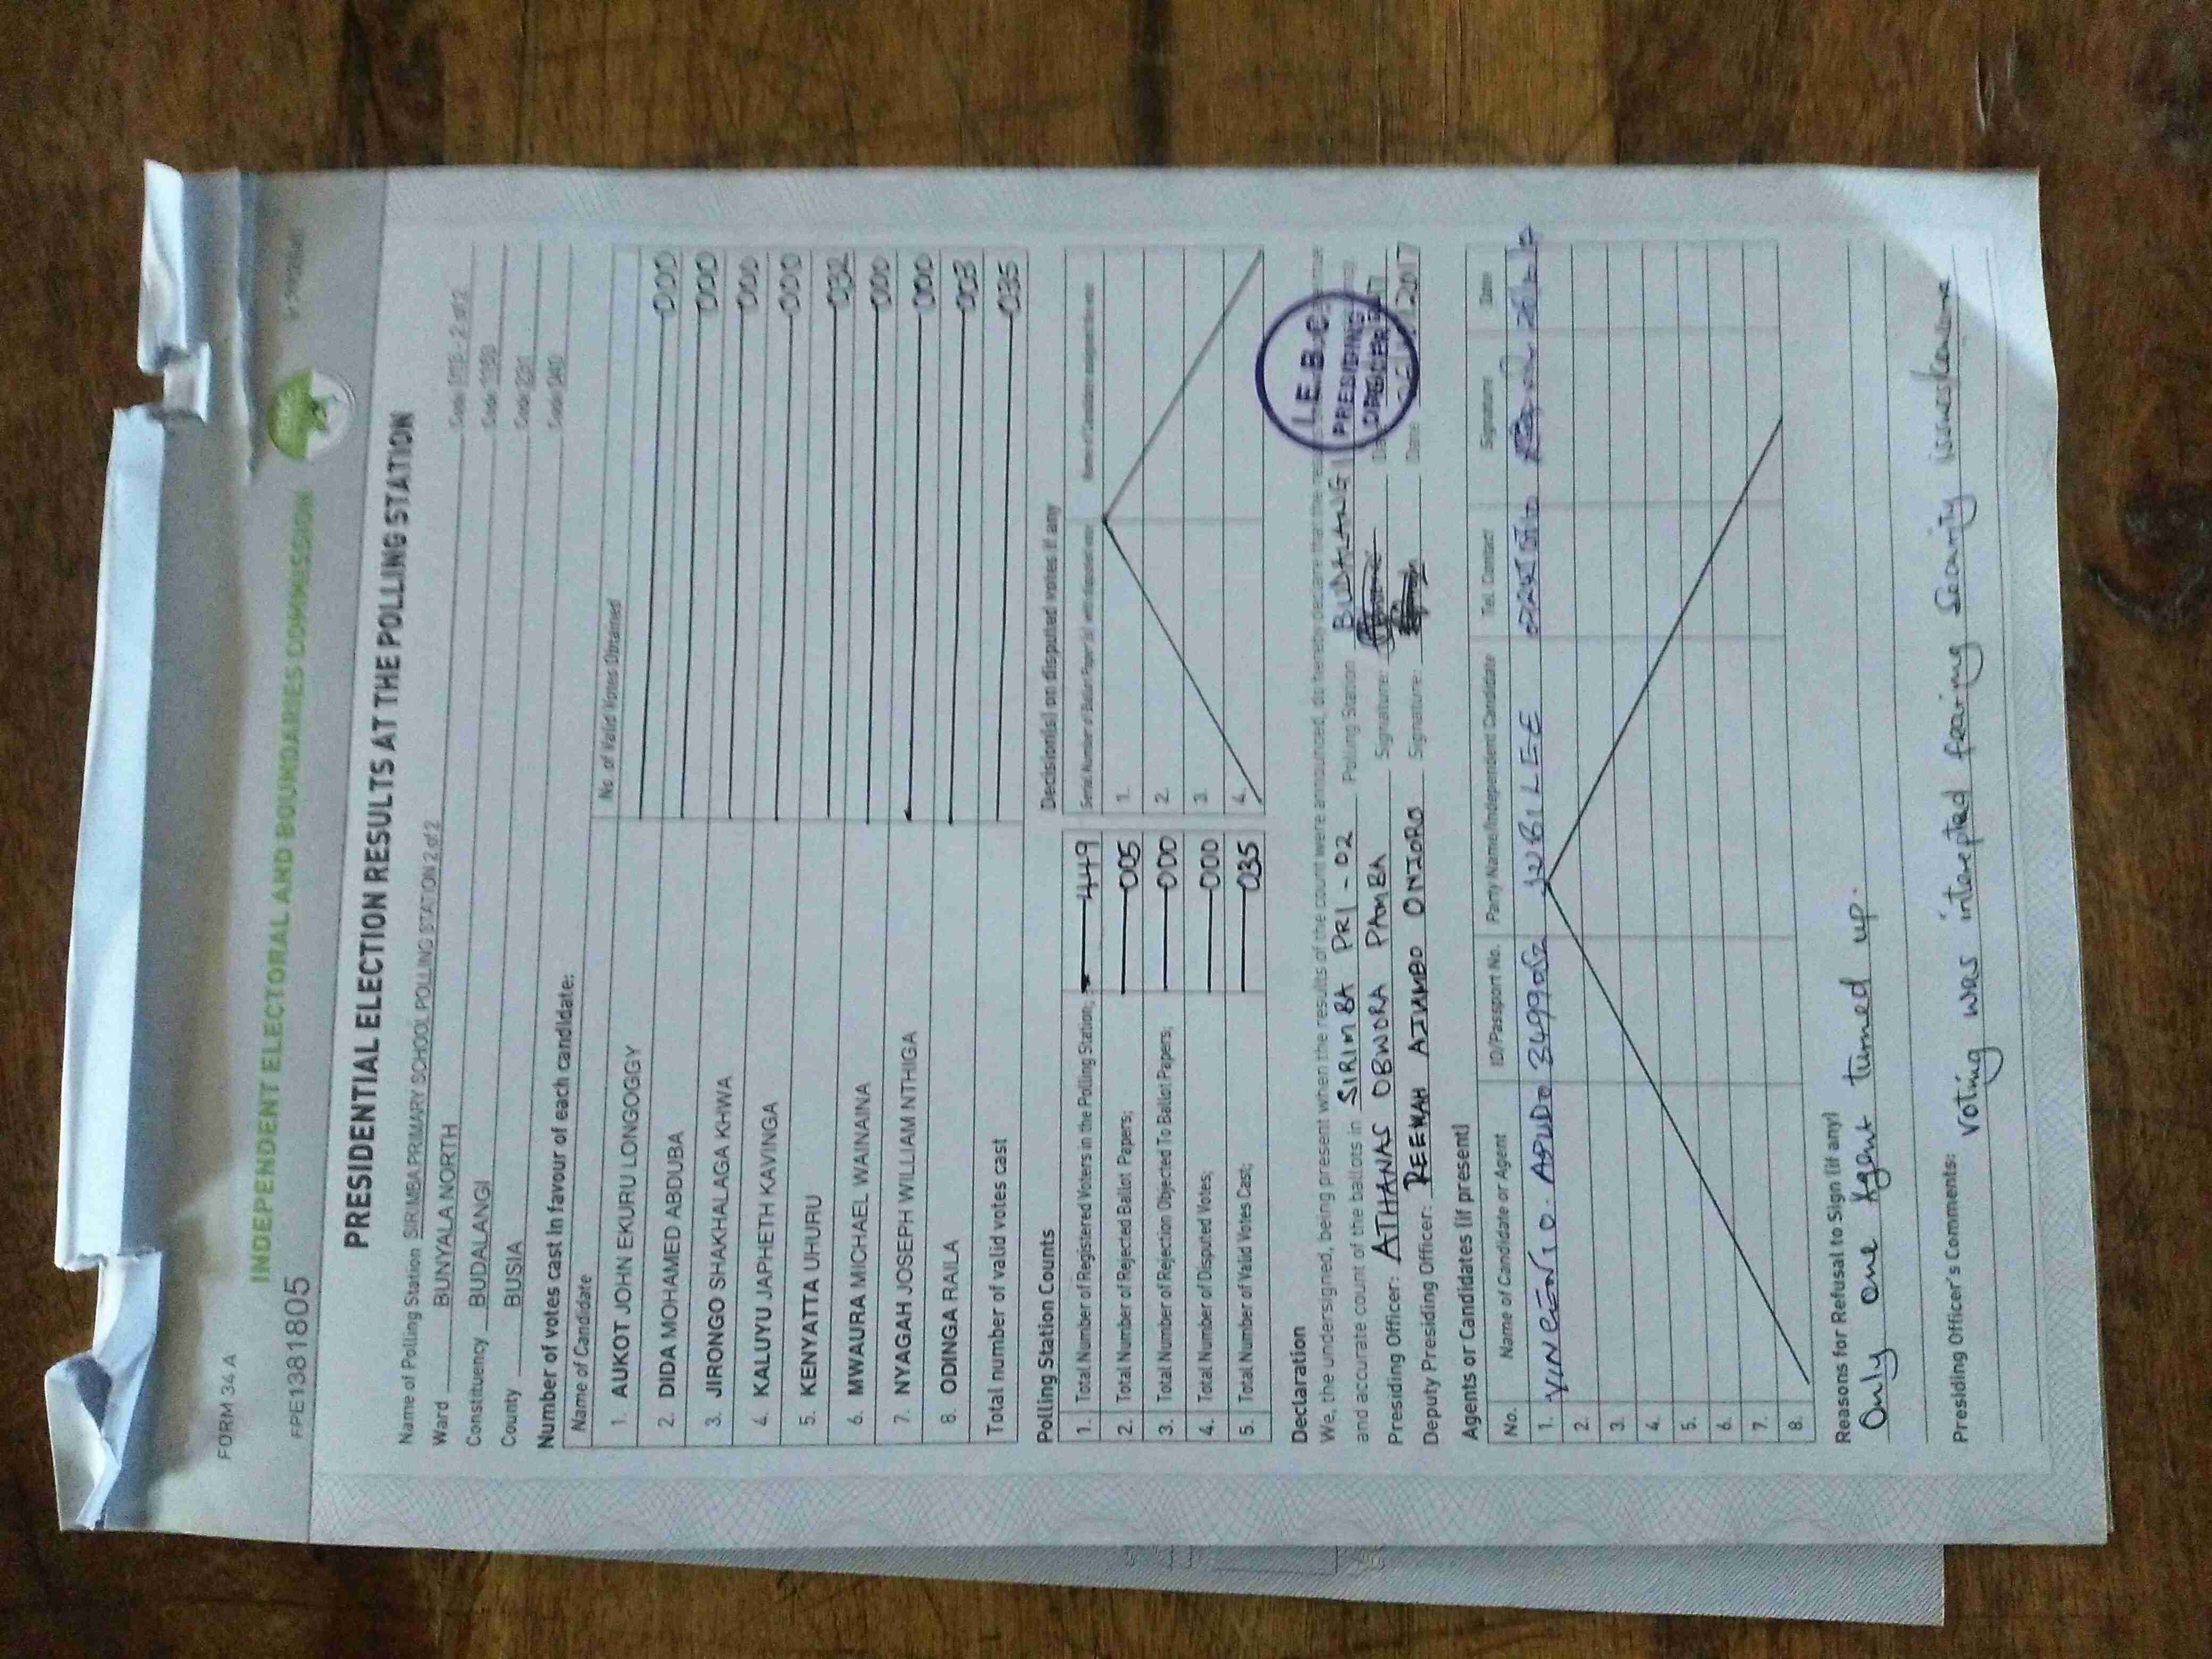 FORM 34 A
INDEPENDENT ELECTORAL AND BOUNDARIES COMMISSION
FPE1381805
PRESIDENTIAL ELECTION RESULTS AT THE POLLING STATION
Name of Polling Station SIRIMBA PRIMARY SCHOOL POLLING STATION 2 of 2 Code 2 of 2
Ward BUNYALA NORTH Code
Constituency BUDALANGI Code
County BUSIA Code 040
Number of votes cast in favour of each candidate:
Name of Candidate No. of Valid Votes Obtained
1. AUKOT JOHN EKURU LONGOGGY 000
2. DIDA MOHAMED ABDUBA 000
3. JIRONGO SHAKHALAGA KHWA 000
4. KALUYU JAPHETH KAVINGA 000
5. KENYATTA UHURU 032
6. MWAURA MICHAEL WAINAINA 000
7. NYAGAH JOSEPH WILLIAM NTHIGA 000
8. ODINGA RAILA 003
Total number of valid votes cast 035
Polling Station Counts Decision(s) on disputed votes if any
1. Total Number of Registered Voters in the Polling Station; 449
2. Total Number of Rejected Ballot Papers; 005 1.
3. Total Number of Rejection Objected To Ballot Papers; 000 2.
4. Total Number of Disputed Votes; 000 3.
5. Total Number of Valid Votes Cast; 035 4.
Declaration
We, the undersigned, being present when the results of the count were announced, do hereby declare that the
and accurate count of the ballots in SIRIMBA PRI - 02 Polling Station BUDALANGI
Presiding Officer: ATHANAS OBWORA PAMBA Signature:
Deputy Presiding Officer: REEMAH AJIAMBO ONJORO Signature: Date 2017
I.E.B.C.
PRESIDING
OFFICER
Agents or Candidates (if present)
No. Name of Candidate or Agent ID/Passport No. Party Name/Independent Candidate Tel. Contact Signature Date
1. JUBILEE
2.
3.
4.
5.
6.
7.
8.
Reasons for Refusal to Sign (if any)
Only one Agent turned up.
Presiding Officer's Comments:
voting was intercepted fearing Security issues